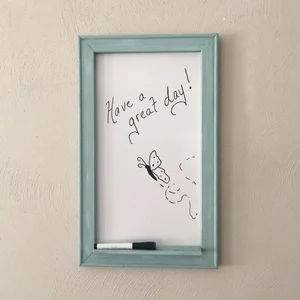 Have a
great day!